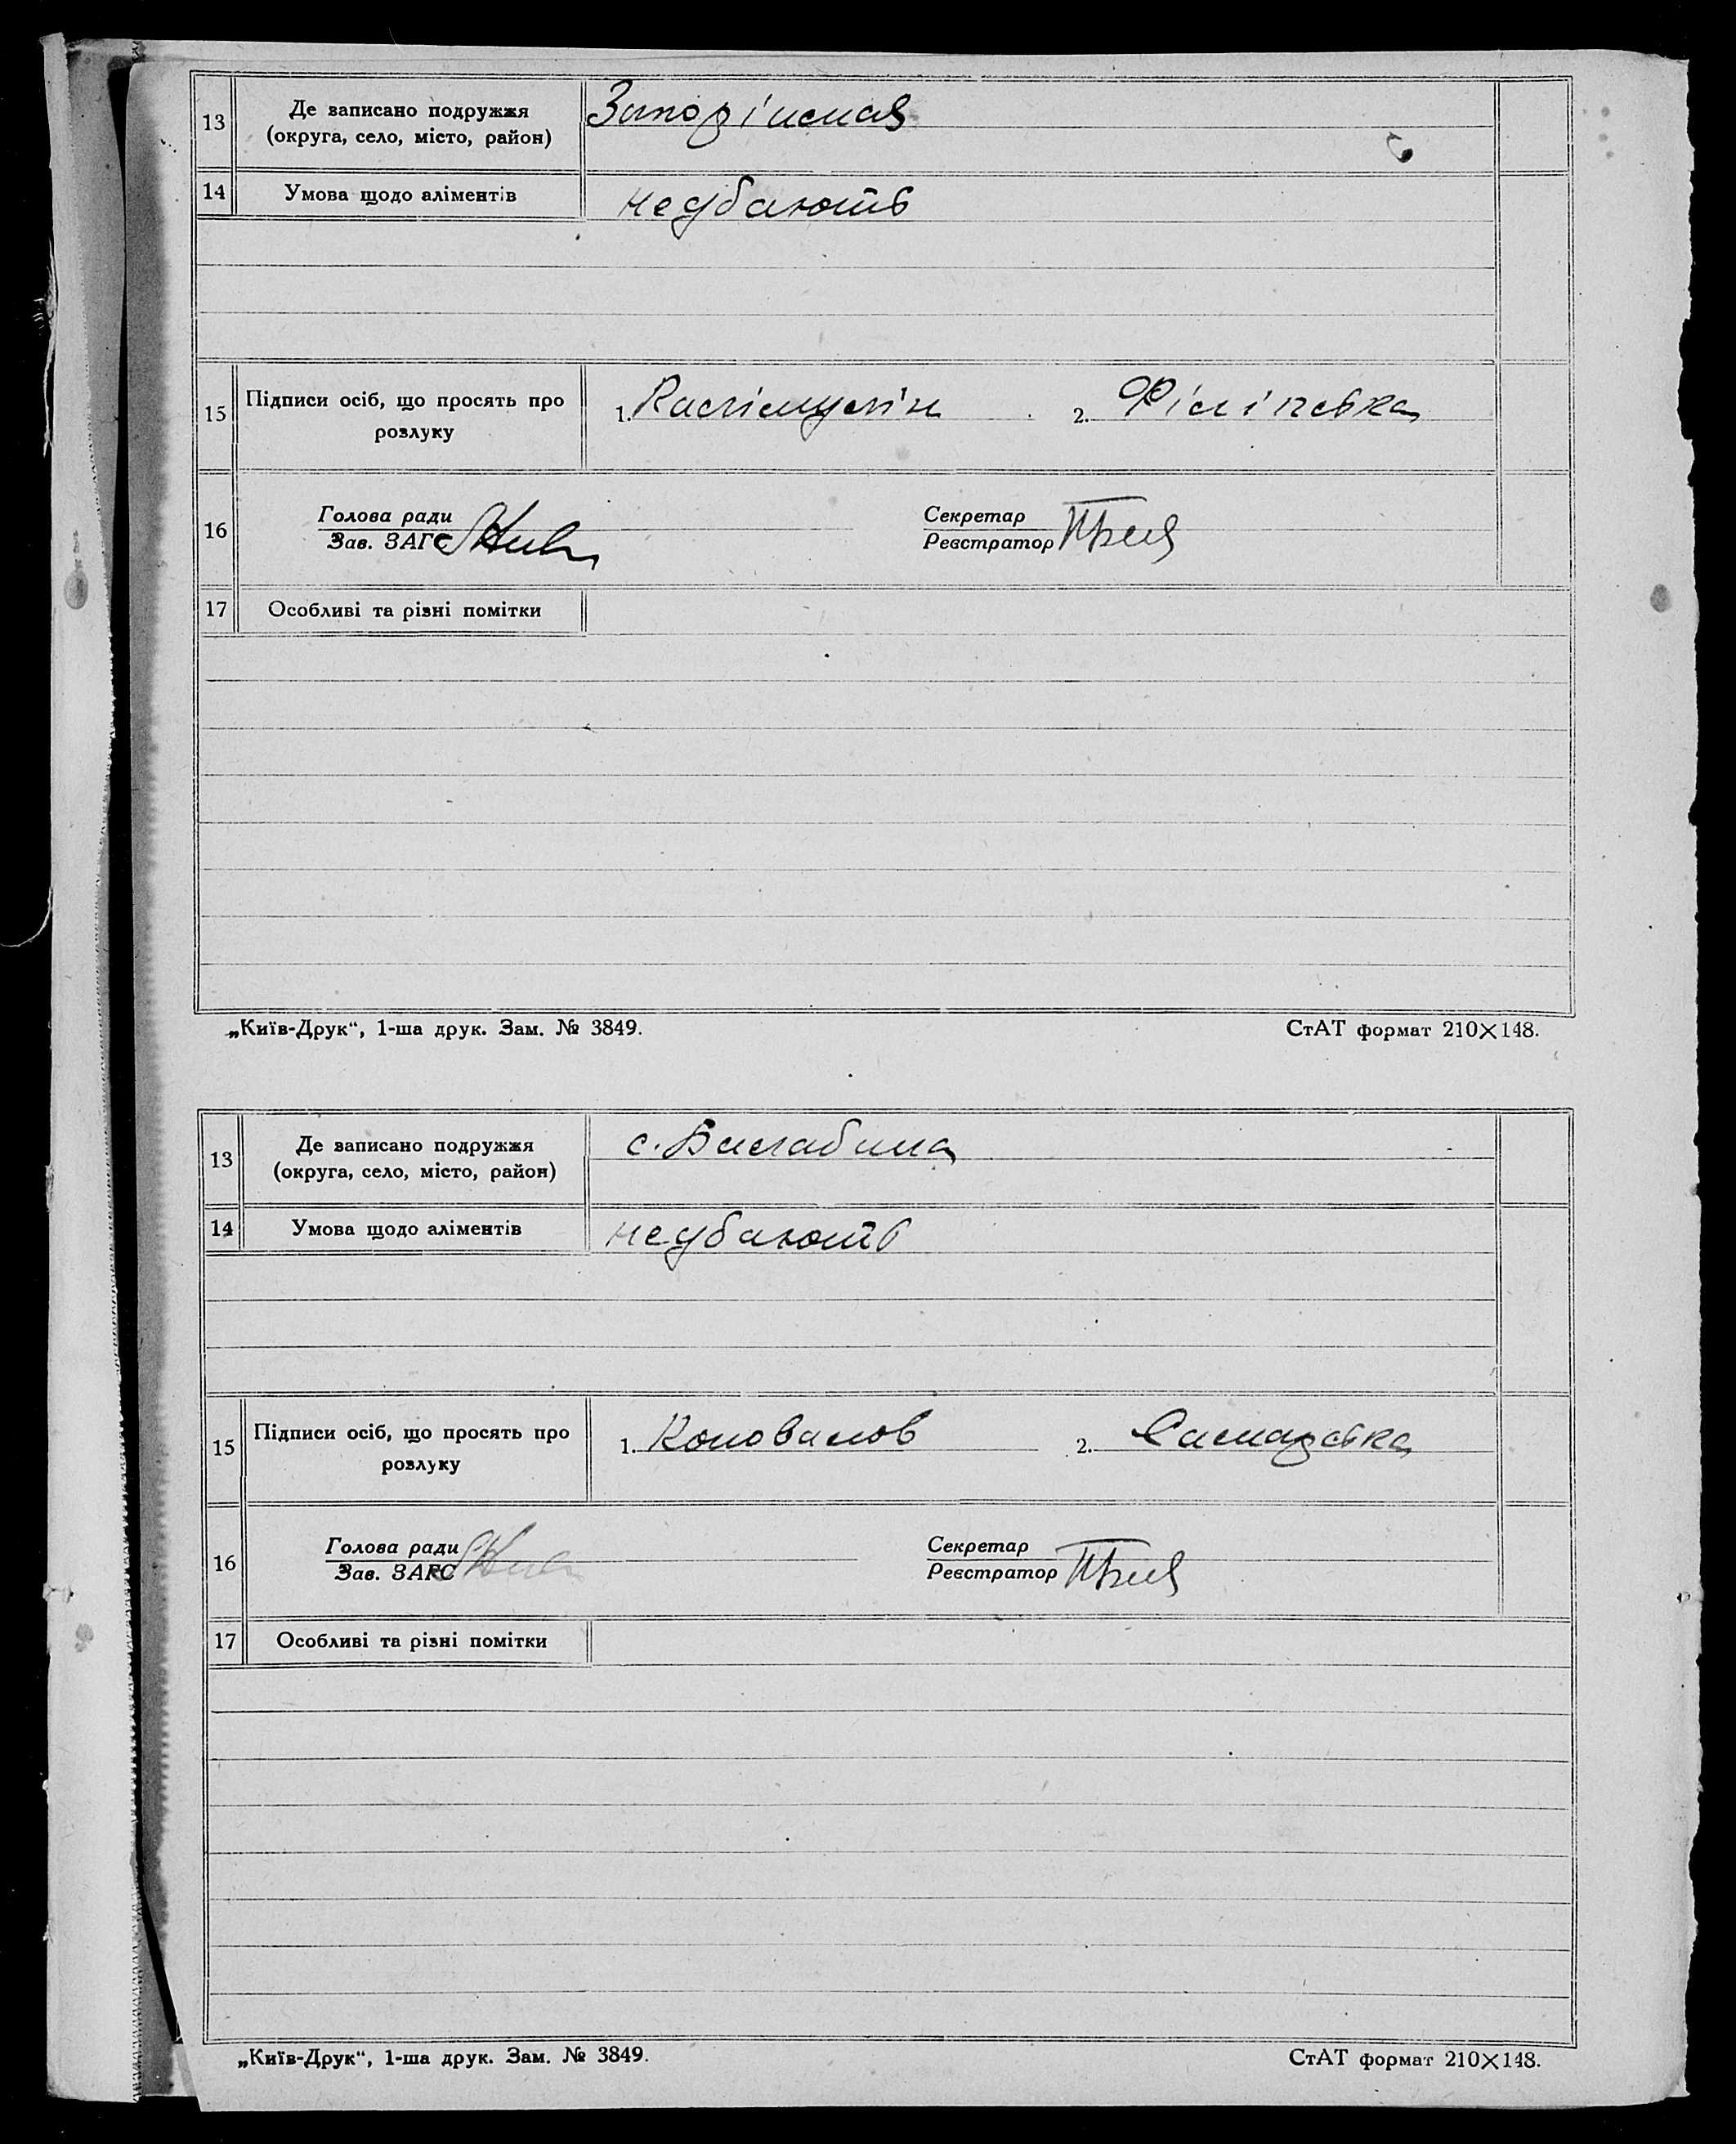 13
Де записано подружжя
(округа, село, місто, район)
14
Умова щодо аліментів
недбають
15
Підписи осіб, що просять про
розлуку
1.
2. Філіпєвка
16
Голова ради
Зав. ЗАГС
Секретар
Реєстратор
17
Особливі та різні помітки
„Київ-Друк“, 1-ша друк. Зам. № 3849.
СтАТ формат 210×148.
13
Де записано подружжя
(округа, село, місто, район)
с.
14
Умова щодо аліментів
недбають
15
Підписи осіб, що просять про
розлуку
1. Коновалов
2.
16
Голова ради
Зав. ЗАГС
Секретар
Реєстратор
17
Особливі та різні помітки
„Київ-Друк“, 1-ша друк. Зам. № 3849.
СтАТ формат 210×148.